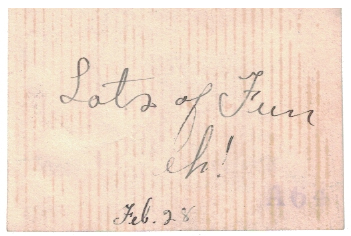 Lots of Fun
eh!
Feb. 28